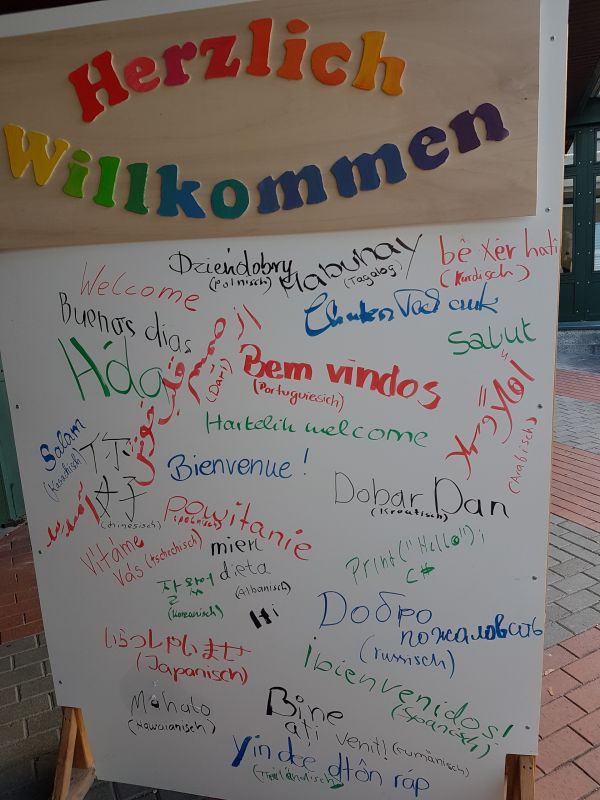 Herzlich
Willkommen
Welcome
Dzieńdobry
(polnisch)
Mabuhay
(Tagalog)
bê xêr hatî
(Kurdisch)
Buenos dias
Salut
از صمیم قلب خوش آمدید
(Dari)
Bem vindos
(Portugiesisch)
اهلا وسهلا
(Arabisch)
Hartelik welcome
Salam
(Kasachisch)
你好
(chinesisch)
Bienvenue!
Dobar Dan
(Kroatisch)
powitanie
(polnisch)
Vitáme
vás (tschechisch)
mierë
dieta
(Albanisch)
Print("Hello");
C#
(Koreanisch)
Hi
Добро
пожаловать
(russisch)
いらっしゃいませ
(Japanisch)
¡bienvenidos!
(Spanisch)
Mahalo
(Hawaianisch)
Bine
ați venit! (rumänisch)
Yin dee dtôn ráp
(Thailändisch)